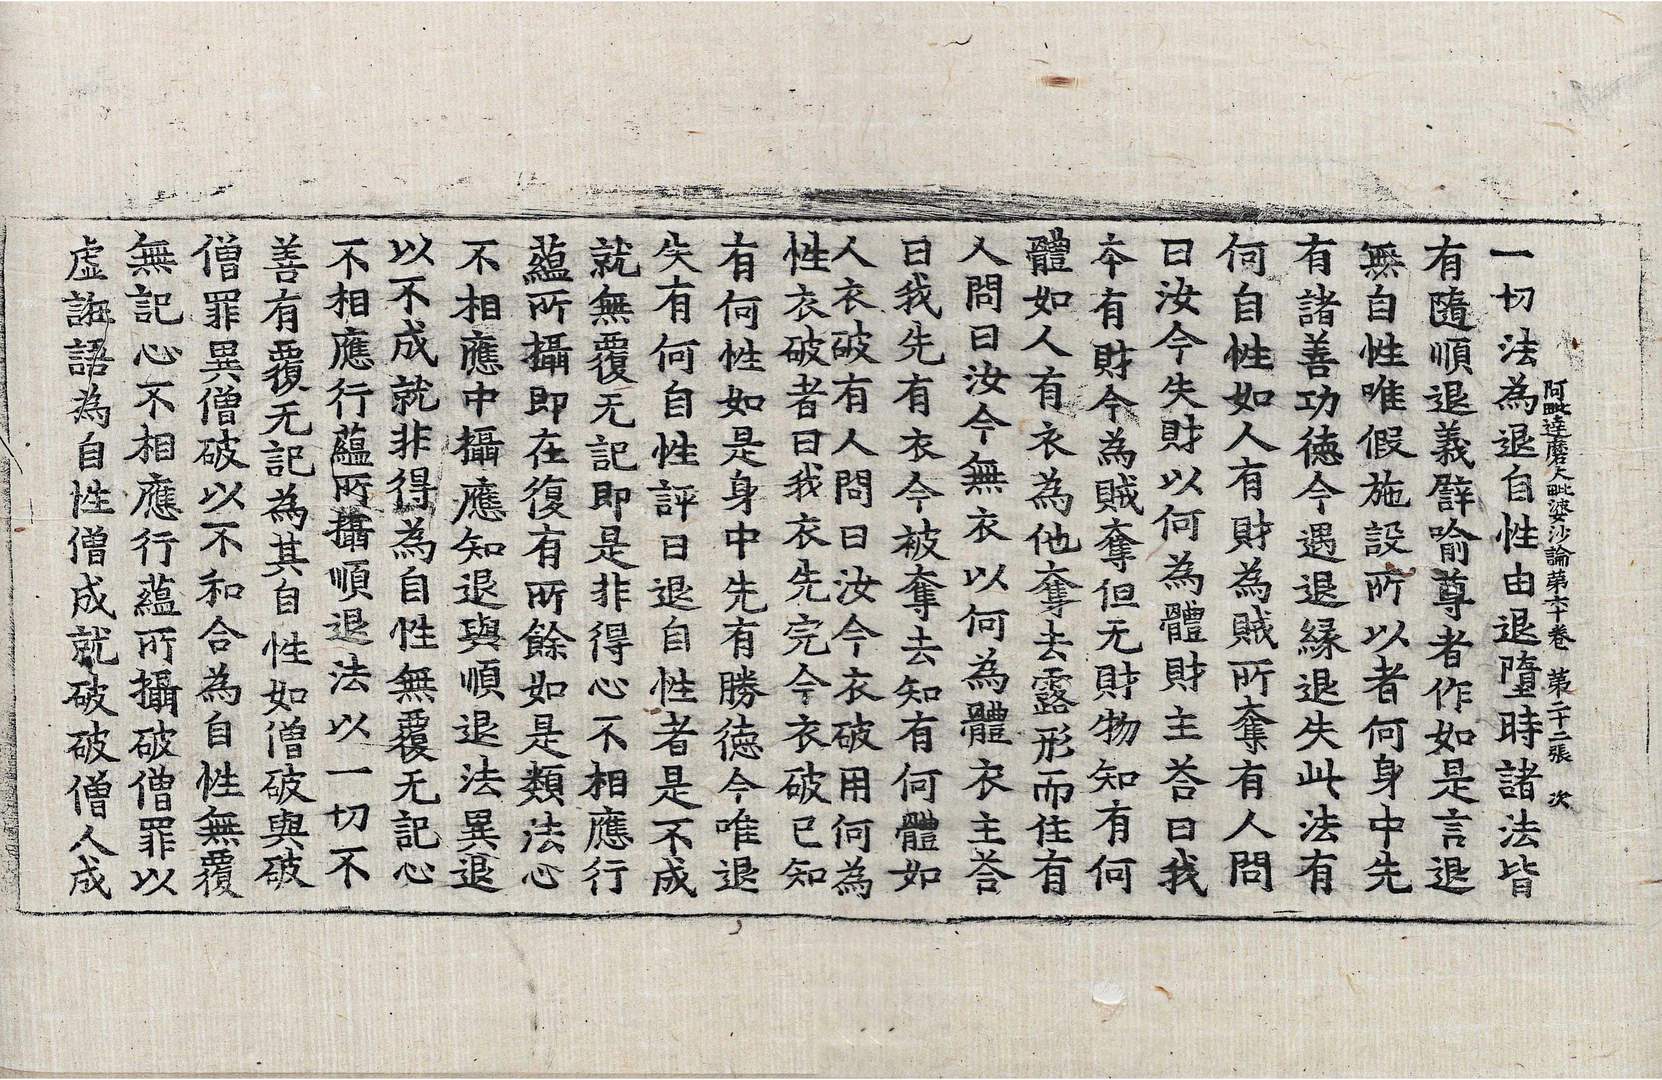 阿毗達磨大毗婆沙論第六十卷 第二十二張 次
一切法為退自性由退墮時諸法皆
有隨順退義譬喻尊者作如是言退
無自性唯假施設所以者何身中先
有諸善功德今遇退緣退失此法有
何自性如人有財為賊所奪有人問
曰汝今失財以何為體財主荅曰我
本有財今為賊奪但无財物知有何
體如人有衣為他奪去露形而住有
人問曰汝今無衣以何為體衣主荅
曰我先有衣今被奪去知有何體如
人衣破有人問曰汝今衣破用何為
性衣破者曰我衣先完今衣破已知
有何性如是身中先有勝德今唯退
失有何自性評曰退自性者是不成
就無覆无記即是非得心不相應行
蘊所攝即在復有所餘如是類法心
不相應中攝應知退與順退法異退
以不成就非得為自性無覆无記心
不相應行蘊所攝順退法以一切不
善有覆无記為其自性如僧破與破
僧罪異僧破以不和合為自性無覆
無記心不相應行蘊所攝破僧罪以
虛誑語為自性僧成就破破僧人成